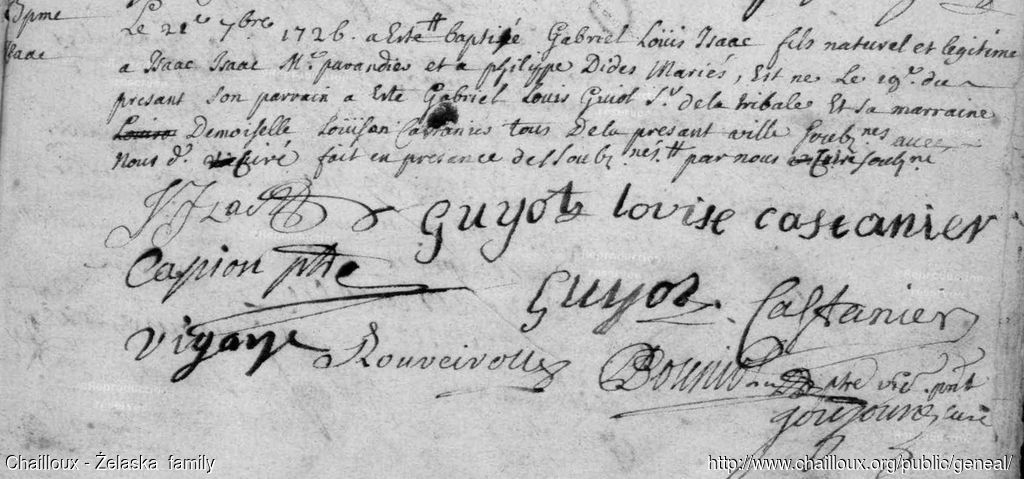 Bpme
Isaac
Le 21e 7bre 1726. a Esté baptisé Gabriel Loüis Isaac fils naturel et legitime
a Isaac Isaac Mr. parandier et a philippe Dides Mariés, Est né Le 19e. du
presant son parrain a Esté Gabriel Louis Guiot Sr. de la tribale Et sa marraine
Demoiselle Loüison Castanier tous De la presant ville Soubz nes avec
Nous d. curé fait en presance des Soubz nés. par nous curé soubz né
J. Isac
Guyot lovise castanier
Capion ptre
Guyot. Castanier
vigane Rouveirolle
ptre vic. pnt
curé
Chailloux - Żelaska family
http://www.chailloux.org/public/geneal/